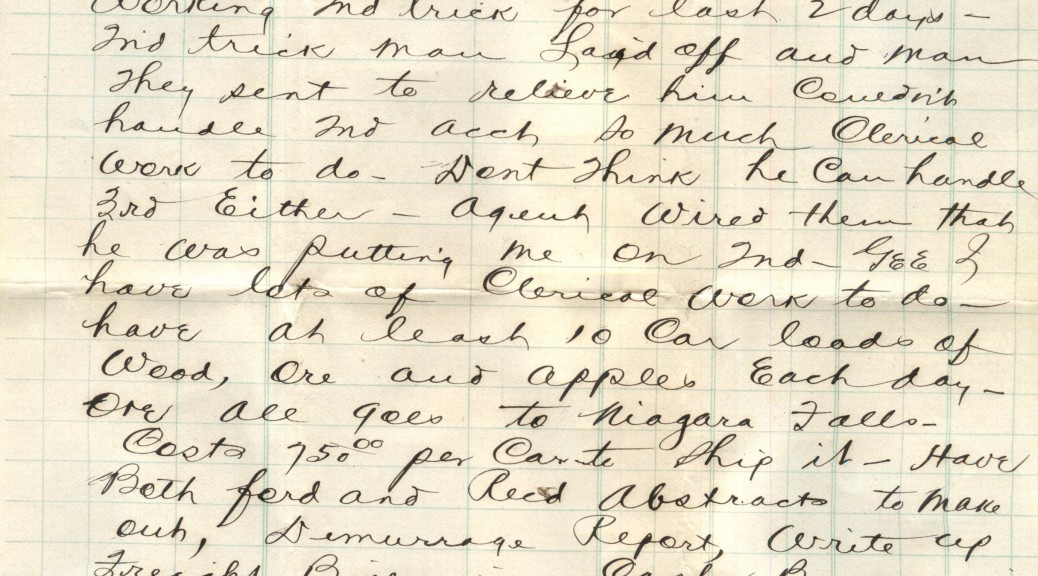 Working 2nd trick for last 2 days -
2nd trick man Laid off and man
They sent to relieve him Couldn't
handle 2nd acct so much Clerical
work to do - Dont Think he Can handle
3rd Either - Agent Wired them that
he was putting me on 2nd - GEE I
have lots of Clerical work to do -
have at least 10 Car loads of
Wood, Ore and apples Each day -
Ore all goes to Niagara Falls -
Costs 750⁰⁰ per Car to Ship it - Have
Both ford and Recd Abstracts to make
out, Demurrage Report, Write up
Freight